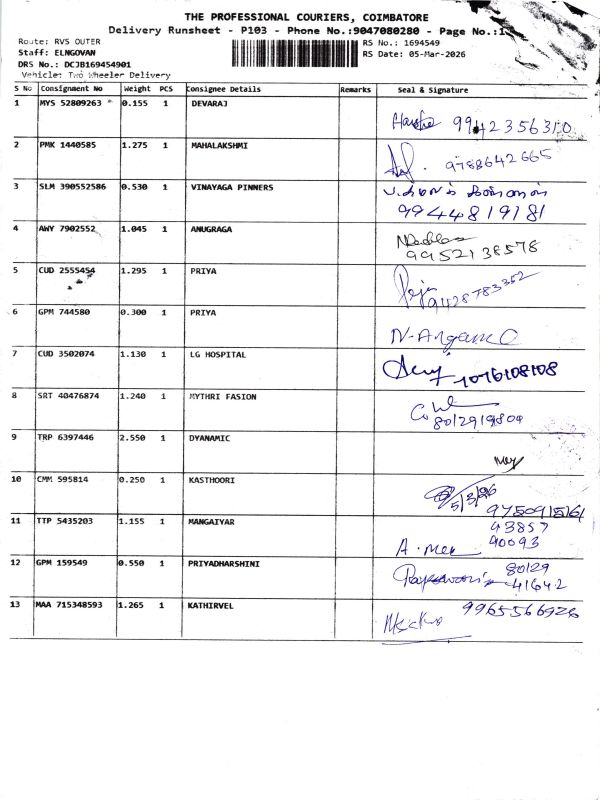 THE PROFESSIONAL COURIERS, COIMBATORE
Delivery Runsheet - P103 - Phone No.:9047080280 - Page No.:1
Route: RVS OUTER
Staff: ELNGOVAN
DRS No.: DCJB169454901
Vehicle: Two Wheeler Delivery
RS No.: 1694549
RS Date: 05-Mar-2026
S No Consignment No Weight PCS Consignee Details Remarks Seal & Signature
1 MYS 52809263 0.155 1 DEVARAJ
9942356310
2 PMK 1440585 1.275 1 MAHALAKSHMI
9788642665
3 SLM 390552586 0.530 1 VINAYAGA PINNERS
9944819181
4 AWY 7902552 1.045 1 ANUGRAGA
9952138578
5 CUD 2555454 1.295 1 PRIYA
9428783352
6 GPM 744580 0.300 1 PRIYA
7 CUD 3502074 1.130 1 LG HOSPITAL
8 SRT 40476874 1.240 1 MYTHRI FASION
8012919804
9 TRP 6397446 2.550 1 DYANAMIC
10 CMM 595814 0.250 1 KASTHOORI
5/3/26
9750915161
11 TTP 5435203 1.155 1 MANGAIYAR
43857
40093
12 GPM 159549 0.550 1 PRIYADHARSHINI
80129
41642
13 MAA 715348593 1.265 1 KATHIRVEL
9965566926